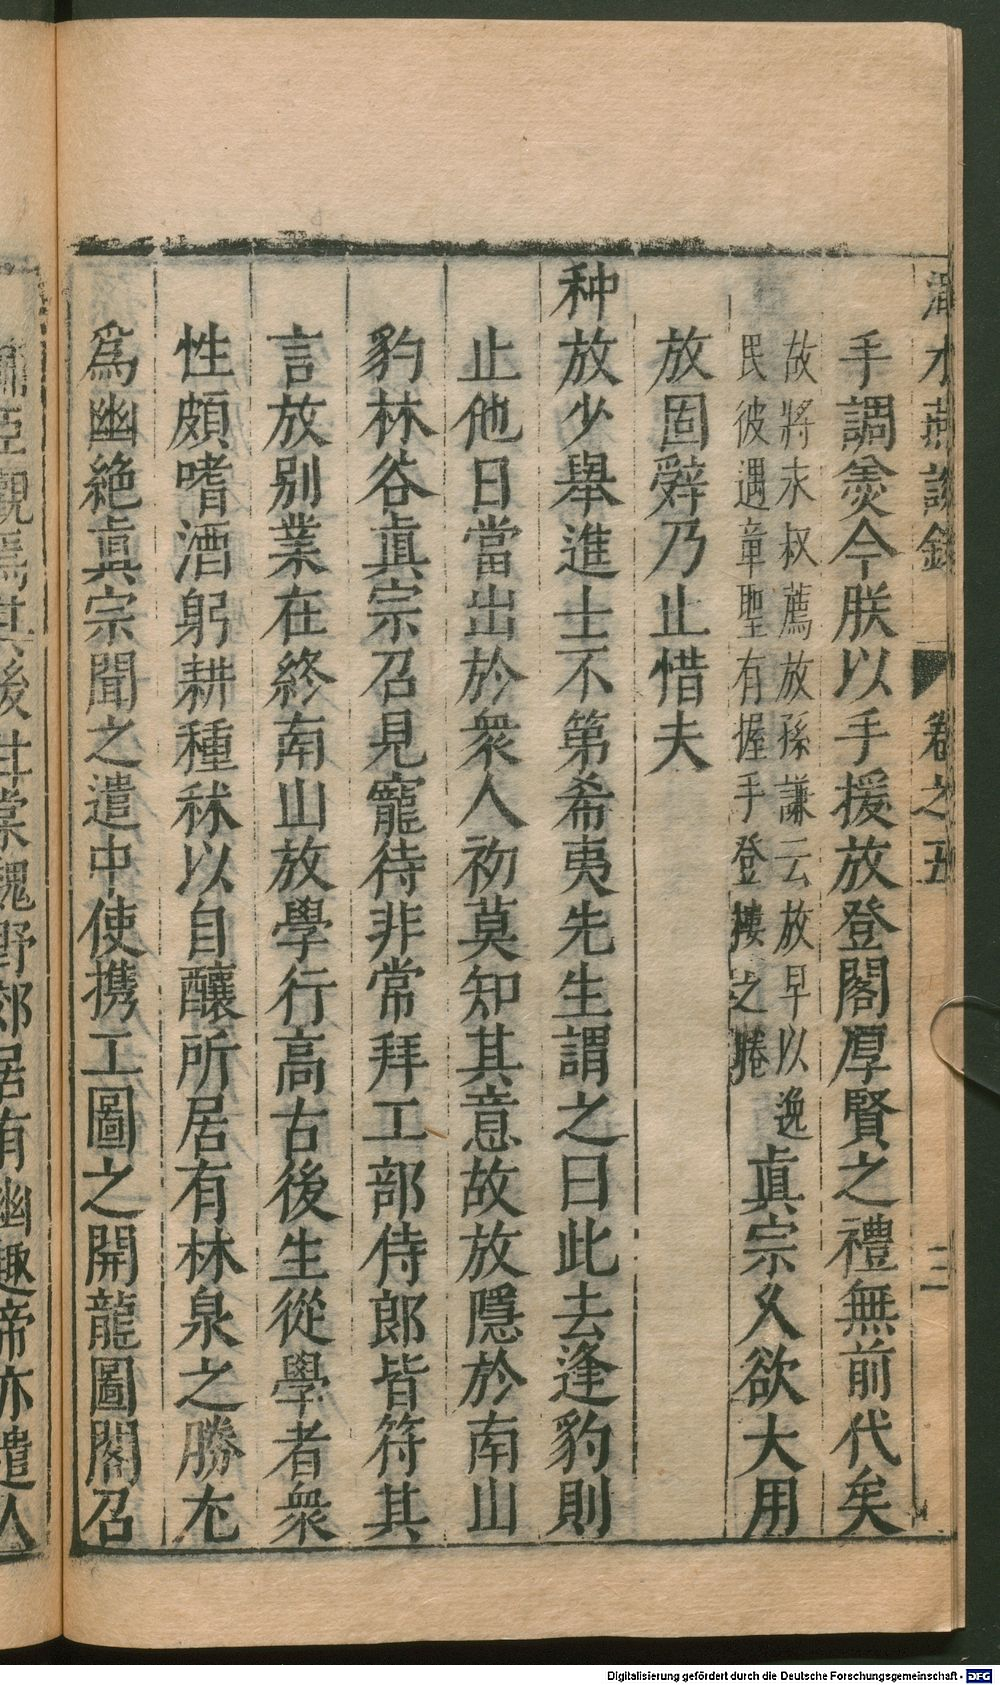 澠水燕談錄 卷之五 三
手調羹今朕以手援放登閣厚賢之禮無前代矣
故將永叔薦放孫謙云放早以逸
民彼遇章聖有握手登樓之睠
真宗久欲大用
放固辭乃止惜夫
种放少舉進士不第希夷先生謂之曰此去逢豹則
止他日當出於衆人初莫知其意故放隱於南山
豹林谷真宗召見寵待非常拜工部侍郎皆符其
言放別業在終南山放學行高古後生從學者衆
性頗嗜酒躬耕種秫以自釀所居有林泉之勝尢
爲幽絶真宗聞之遣中使携工圖之開龍圖閣召
後世棠魏野郊居有幽趣帝亦遣人
Digitalisierung gefördert durch die Deutsche Forschungsgemeinschaft - DFG